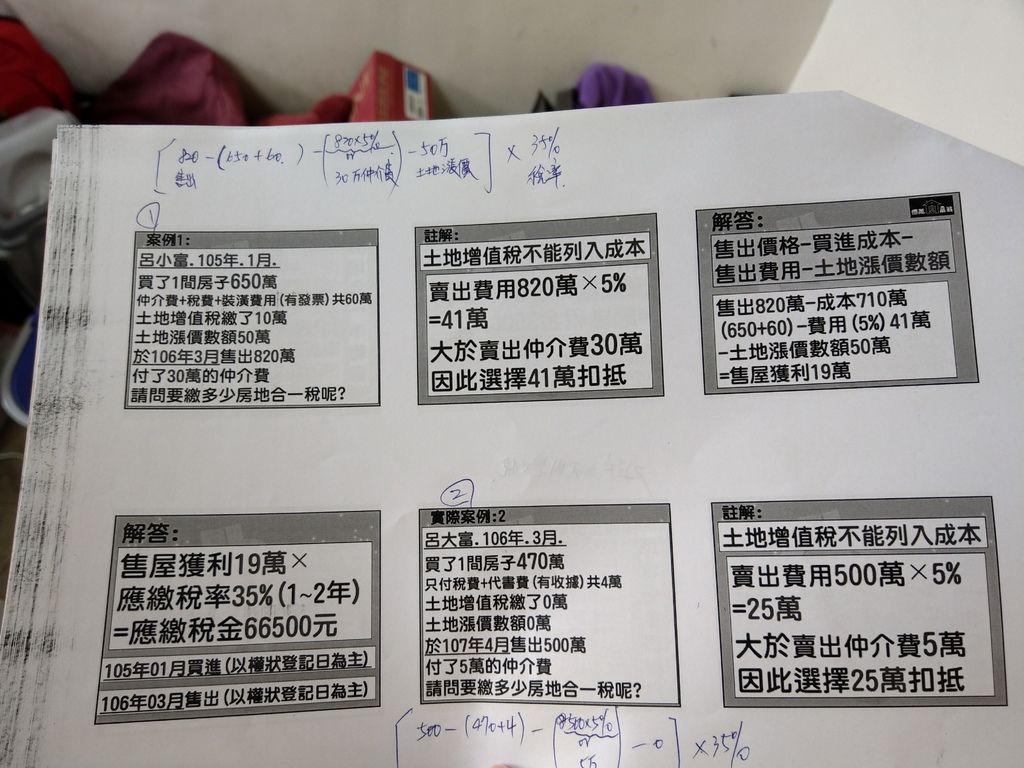 [ 820 - (650+60) - (820×5% ) - 50万 ] × 35%
售出
or
30万仲介費
土地漲價
稅率
①
案例1:
呂小富.105年.1月.
買了1間房子650萬
仲介費+稅費+裝潢費用(有發票)共60萬
土地增值稅繳了10萬
土地漲價數額50萬
於106年3月售出820萬
付了30萬的仲介費
請問要繳多少房地合一稅呢?
註解:
土地增值稅不能列入成本
賣出費用820萬×5%
=41萬
大於賣出仲介費30萬
因此選擇41萬扣抵
解答:
售出價格-買進成本-
售出費用-土地漲價數額
售出820萬-成本710萬
(650+60)-費用(5%)41萬
-土地漲價數額50萬
=售屋獲利19萬
解答:
售屋獲利19萬×
應繳稅率35%(1~2年)
=應繳稅金66500元
105年01月買進(以權狀登記日為主)
106年03月售出(以權狀登記日為主)
②
實際案例:2
呂大富.106年.3月.
買了1間房子470萬
只付稅費+代書費(有收據)共4萬
土地增值稅繳了0萬
土地漲價數額0萬
於107年4月售出500萬
付了5萬的仲介費
請問要繳多少房地合一稅呢?
註解:
土地增值稅不能列入成本
賣出費用500萬×5%
=25萬
大於賣出仲介費5萬
因此選擇25萬扣抵
[ 500 - (470+4) - (500×5% ) - 0 ] ×35%
or
5万